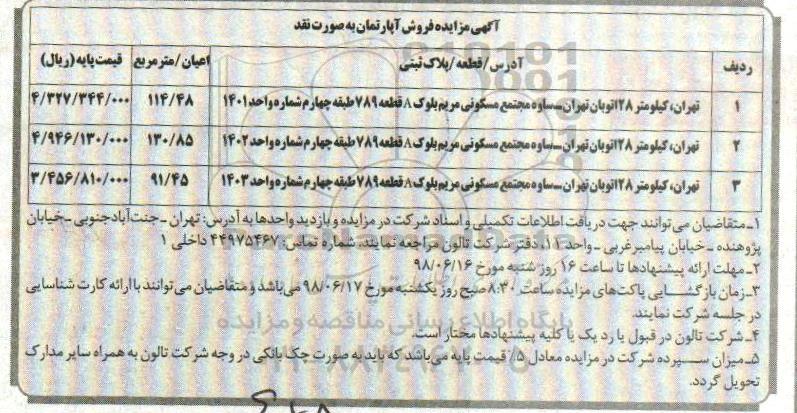 آگهی مزایده فروش آپارتمان به صورت نقد
ردیف آدرس/قطعه/پلاک ثبتی اعیان/متر مربع قیمت پایه (ریال)
۱ تهران، کیلومتر ۲۸ اتوبان تهران_ساوه مجتمع مسکونی مریم بلوک ۸ قطعه ۷۸۹ طبقه چهارم شماره واحد ۱۴۰۱ ۱۱۴/۴۸ ۴/۳۲۷/۳۴۴/۰۰۰
۲ تهران، کیلومتر ۲۸ اتوبان تهران_ساوه مجتمع مسکونی مریم بلوک ۸ قطعه ۷۸۹ طبقه چهارم شماره واحد ۱۴۰۲ ۱۳۰/۸۵ ۴/۹۴۶/۱۳۰/۰۰۰
۳ تهران، کیلومتر ۲۸ اتوبان تهران_ساوه مجتمع مسکونی مریم بلوک ۸ قطعه ۷۸۹ طبقه چهارم شماره واحد ۱۴۰۳ ۹۱/۴۵ ۳/۴۵۶/۸۱۰/۰۰۰
۱_متقاضیان می‌توانند جهت دریافت اطلاعات تکمیلی و اسناد شرکت در مزایده و بازدید واحدها به آدرس: تهران _ جنت‌آباد جنوبی _خیابان
پژوهنده _ خیابان پیامبر غربی _ واحد ۱۱، دفتر شرکت تالون مراجعه نمایند. شماره تماس: ۴۴۹۷۵۴۶۷ داخلی ۱
۲_مهلت ارائه پیشنهادها تا ساعت ۱۶ روز شنبه مورخ ۹۸/۰۶/۱۶
۳_زمان بازگشایی پاکت‌های مزایده ساعت ۸:۳۰ صبح روز یکشنبه مورخ ۹۸/۰۶/۱۷ می‌باشد و متقاضیان می‌توانند با ارائه کارت شناسایی
در جلسه شرکت نمایند.
۴_شرکت تالون در قبول یا رد یک یا کلیه پیشنهادها مختار است.
۵_میزان سپرده شرکت در مزایده معادل ۵٪ قیمت پایه می‌باشد که باید به صورت چک بانکی در وجه شرکت تالون به همراه سایر مدارک
تحویل گردد.
پایگاه اطلاع رسانی مناقصه و مزایده